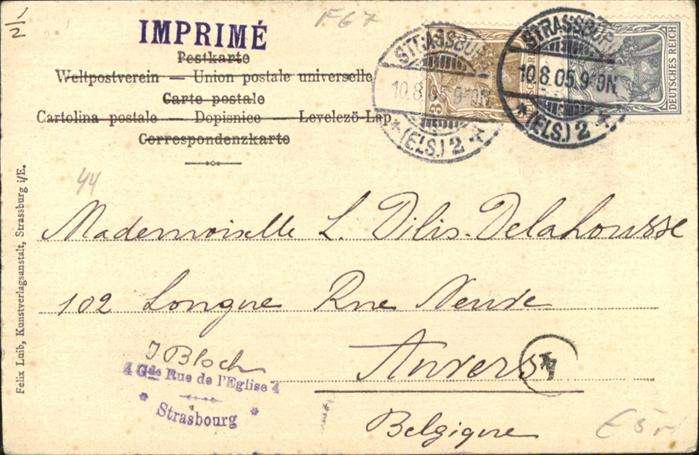 1/2
F67
IMPRIMÉ
Postkarte
Weltpostverein — Union postale universelle
Carte postale
Cartolina postale — Dopisnice — Levelező-Lap
Correspondenzkarte
STRASSBURG
10.8.05.9-10N
*(ELS.) 2*
STRASSBURG
10.8.05.9-10N
*(ELS.) 2*
DEUTSCHES REICH
44
Mademoiselle L. Dilis-Delahousse
102 Longue Rue Neuve
Anvers
Belgique
J Bloch
4 Gde Rue de l'Eglise 4
* Strasbourg *
Felix Luib, Kunstverlagsanstalt, Strassburg i/E.